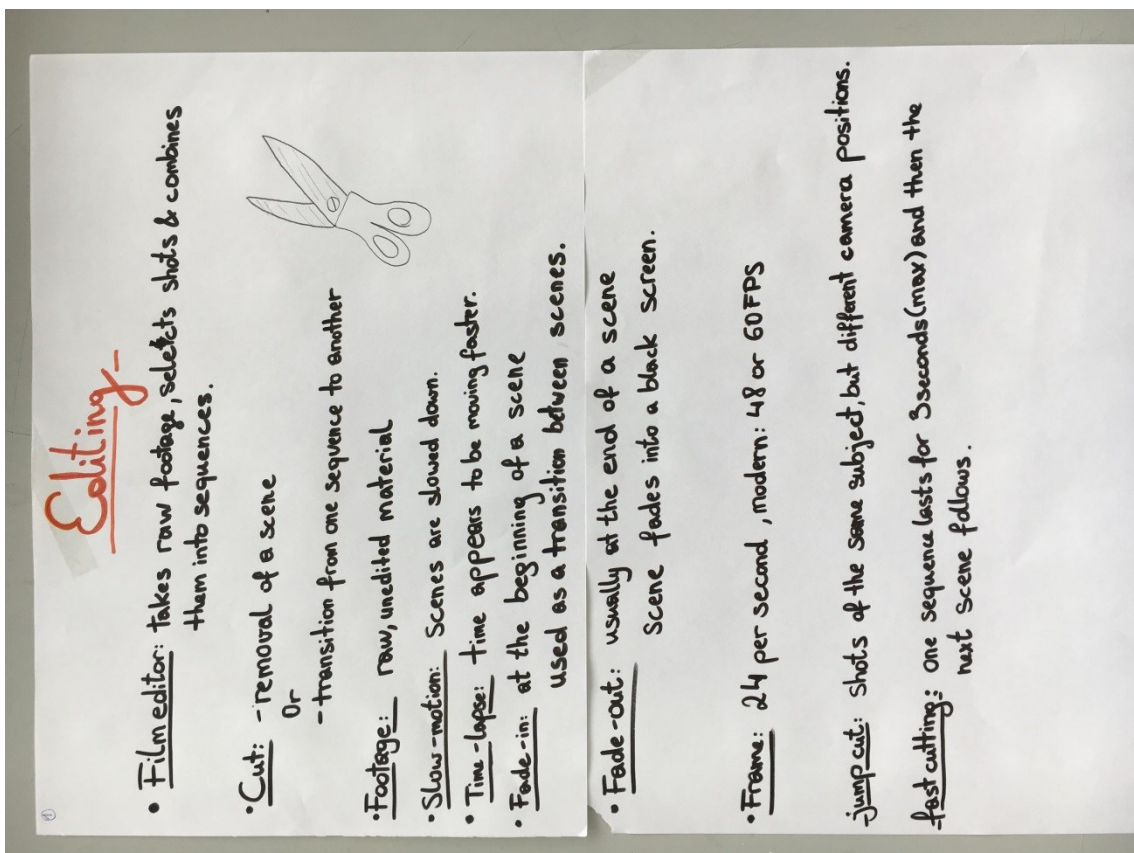 Editing-
• Film editor: takes raw footage, selects shots & combines
them into sequences.
• Cut: - removal of a scene
or
- transition from one sequence to another
• Footage: raw, unedited material
• Slow-motion: Scenes are slowed down.
• Time-lapse: time appears to be moving faster.
• Fade-in: at the beginning of a scene
used as a transition between scenes.
• Fade-out: usually at the end of a scene
scene fades into a black screen.
• Frame: 24 per second, modern: 48 or 60FPS
-jump cut: shots of the same subject, but different camera positions.
-fast cutting: one sequence lasts for 3seconds(max) and then the
next scene follows.